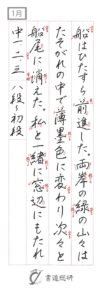 1月
船はひたすら前進した。両岸の緑の山々は
たそがれの中で薄墨色に変わり次々と
船尾に消えた。私と一緒に窓辺にもたれ
中一・二・三 八段～初段
書道総研